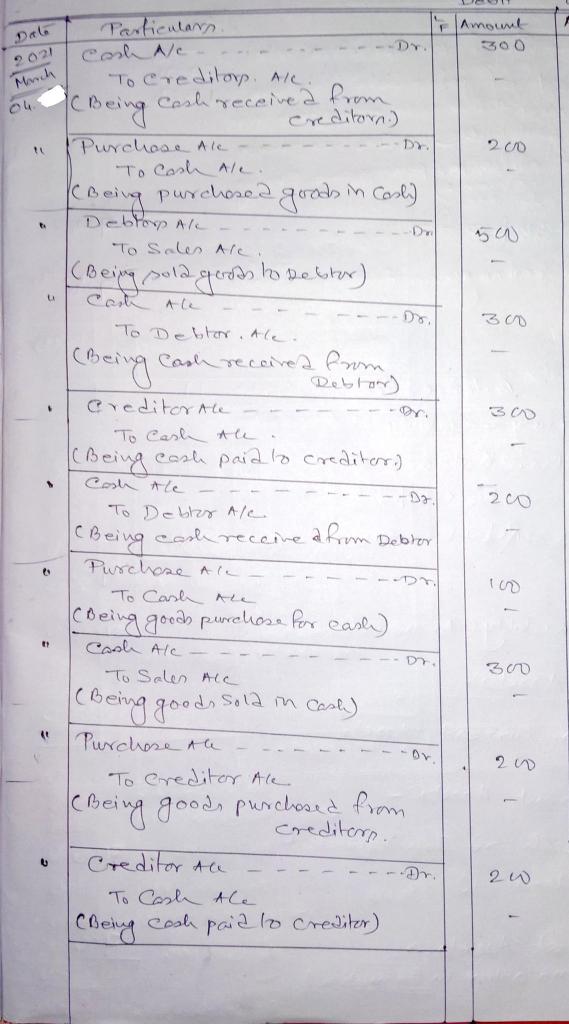 Date Particulars. L/F Amount
2021 Cash A/c - - - - - - - - - Dr. 300
March To Creditors. A/c. -
04. (Being Cash received from
creditors.)
" Purchase A/c - - - - - - - - Dr. 200
To Cash A/c. -
(Being purchased goods in Cash)
" Debtors A/c - - - - - - - - Dr 500
To Sales A/c. -
(Being sold goods to Debtor)
" Cash A/c - - - - - - - - Dr. 300
To Debtor. A/c. -
(Being Cash received from
Debtor)
" Creditor A/c - - - - - - - - Dr. 300
To Cash A/c. -
(Being cash paid to creditor.)
" Cash A/c - - - - - - - - Dr. 200
To Debtor A/c -
(Being cash received from Debtor
" Purchase A/c - - - - - - - - Dr. 100
To Cash A/c -
(Being goods purchase for cash)
" Cash A/c - - - - - - - - Dr. 300
To Sales A/c -
(Being goods Sold in Cash)
" Purchase A/c - - - - - - - - Dr. 200
To Creditor A/c
(Being goods purchased from -
creditors.
" Creditor A/c - - - - - - - - Dr. 200
To Cash A/c
(Being Cash paid to Creditor) -